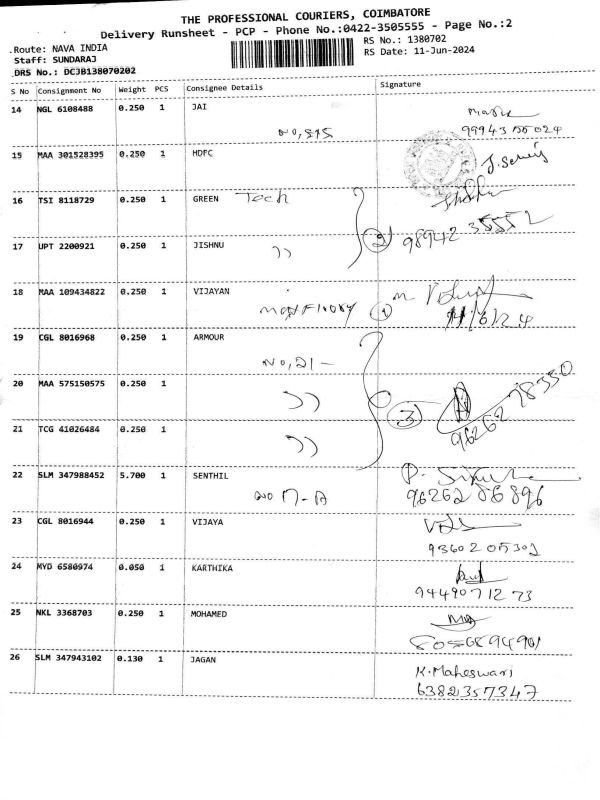 THE PROFESSIONAL COURIERS, COIMBATORE
Delivery Runsheet - PCP - Phone No.:0422-3505555 - Page No.:2
.Route: NAVA INDIA
RS No.: 1380702
Staff: SUNDARAJ
RS Date: 11-Jun-2024
.DRS No.: DCJB138070202
S No Consignment No Weight PCS Consignee Details Signature
14 NGL 6108488 0.250 1 JAI
NO,815
15 MAA 301528395 0.250 1 HDFC
16 TSI 8118729 0.250 1 GREEN Tech
2 98942 35552
17 UPT 2200921 0.250 1 JISHNU
18 MAA 109434822 0.250 1 VIJAYAN
1 11/6/24
19 CGL 8016968 0.250 1 ARMOUR
NO,21-
20 MAA 575150575 0.250 1
3 96262 78350
21 TCG 41026484 0.250 1
22 SLM 347988452 5.700 1 SENTHIL
NO 17-A
23 CGL 8016944 0.250 1 VIJAYA
93602 05302
24 MYD 6580974 0.050 1 KARTHIKA
94490 71273
25 NKL 3368703 0.250 1 MOHAMED
26 SLM 347943102 0.130 1 JAGAN K.Maheswari
6382357347